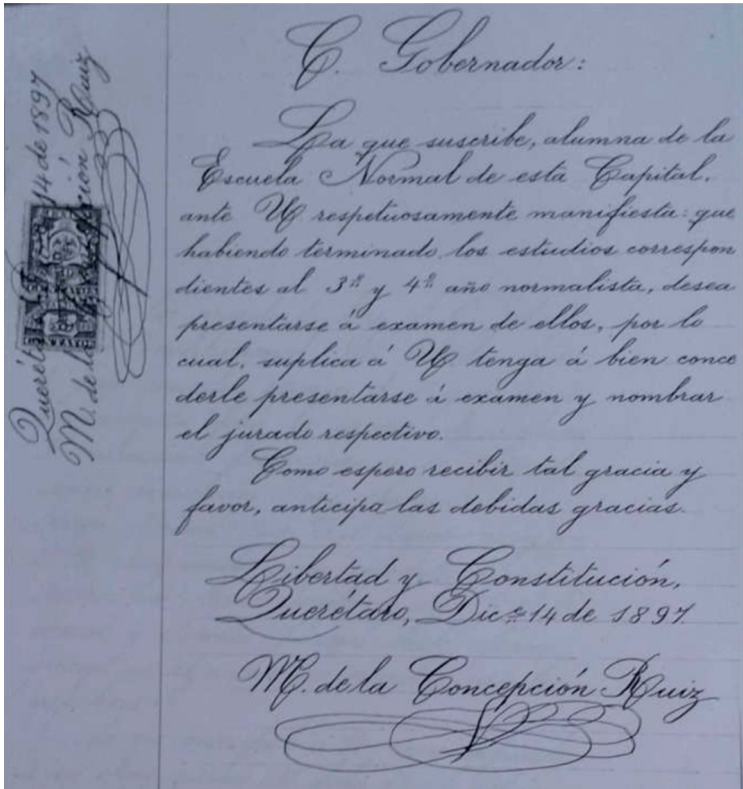 C. Gobernador:
La que suscribe, alumna de la
Escuela Normal de esta Capital,
ante U. respetuosamente manifiesta: que
habiendo terminado los estudios correspon
dientes al 3º y 4º año normalista, desea
presentarse á examen de ellos, por lo
cual, suplica á U. tenga á bien conce
derle presentarse á examen y nombrar
el jurado respectivo.
Como espero recibir tal gracia y
favor, anticipa las debidas gracias.
Libertad y Constitución,
Querétaro, Dice 14 de 1897.
M. de la Concepción Ruiz
Querétaro 14 de 1897
M. de la Concepción Ruiz